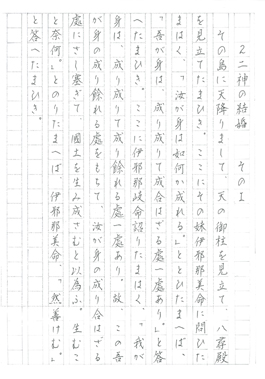 ２二神の結婚　その１
その島に天降りまして、天の御柱を見立て、八尋殿
を見立てたまひき。ここにその妹伊邪那美命に問ひた
まはく、「汝が身は如何か成れる。」ととひたまへば、
「吾が身は、成り成りて成合はざる處一處あり。」と答
へたまひき。ここに伊邪那岐命詔りたまはく、「我が
身は、成り成りて成り餘れる處一處あり。故、この吾
が身の成り餘れる處をもちて、汝が身の成り合はざる
處にさし塞ぎて、國土を生み成さむと以爲ふ。生むこ
と奈何。」とのりたまへば、伊邪那美命、「然善けむ。」
と答へたまひき。